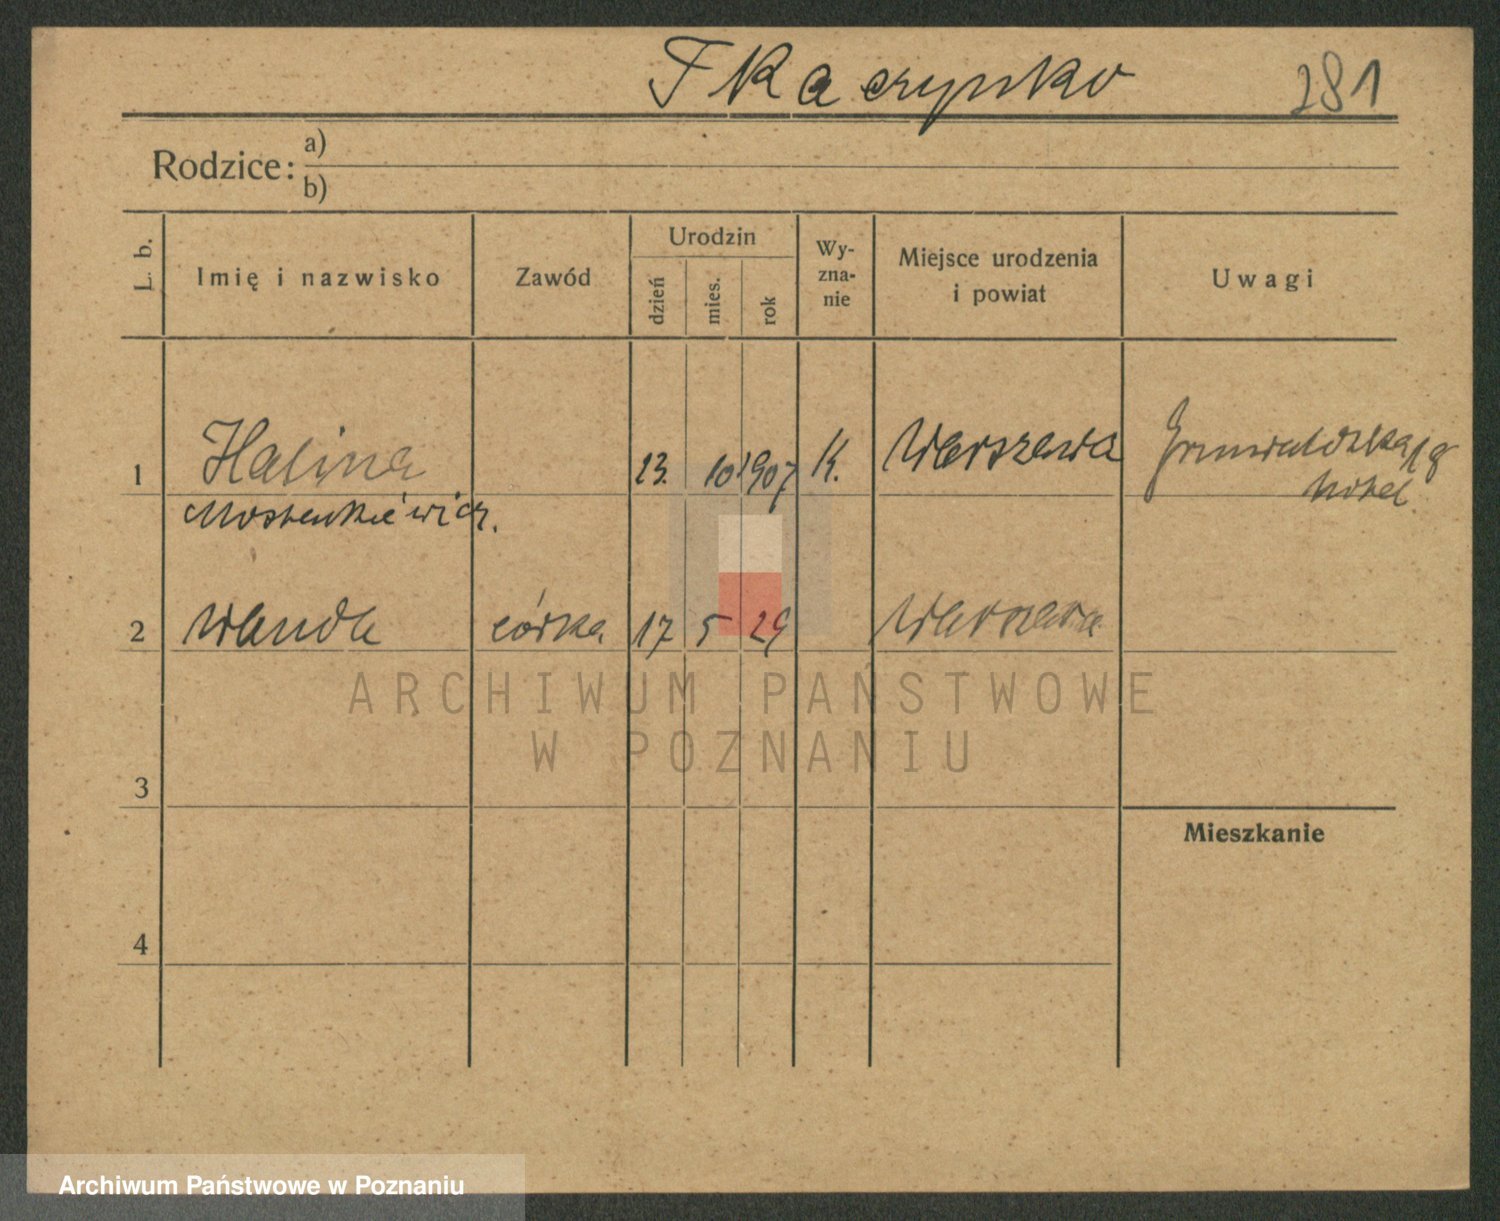 Tkaczynko 281
Rodzice: a)
b)
L. b. Imię i nazwisko Zawód Urodzin dzień mies. rok Wy-zna-nie Miejsce urodzenia i powiat Uwagi
1 Halina 23. 10 1907 K. Warszawa Grunwaldzka 18
Mostenkiewicz. hotel
2 Wanda córka 17 5 29 Warszawa
ARCHIWUM PAŃSTWOWE
W POZNANIU
3
Mieszkanie
4
Archiwum Państwowe w Poznaniu